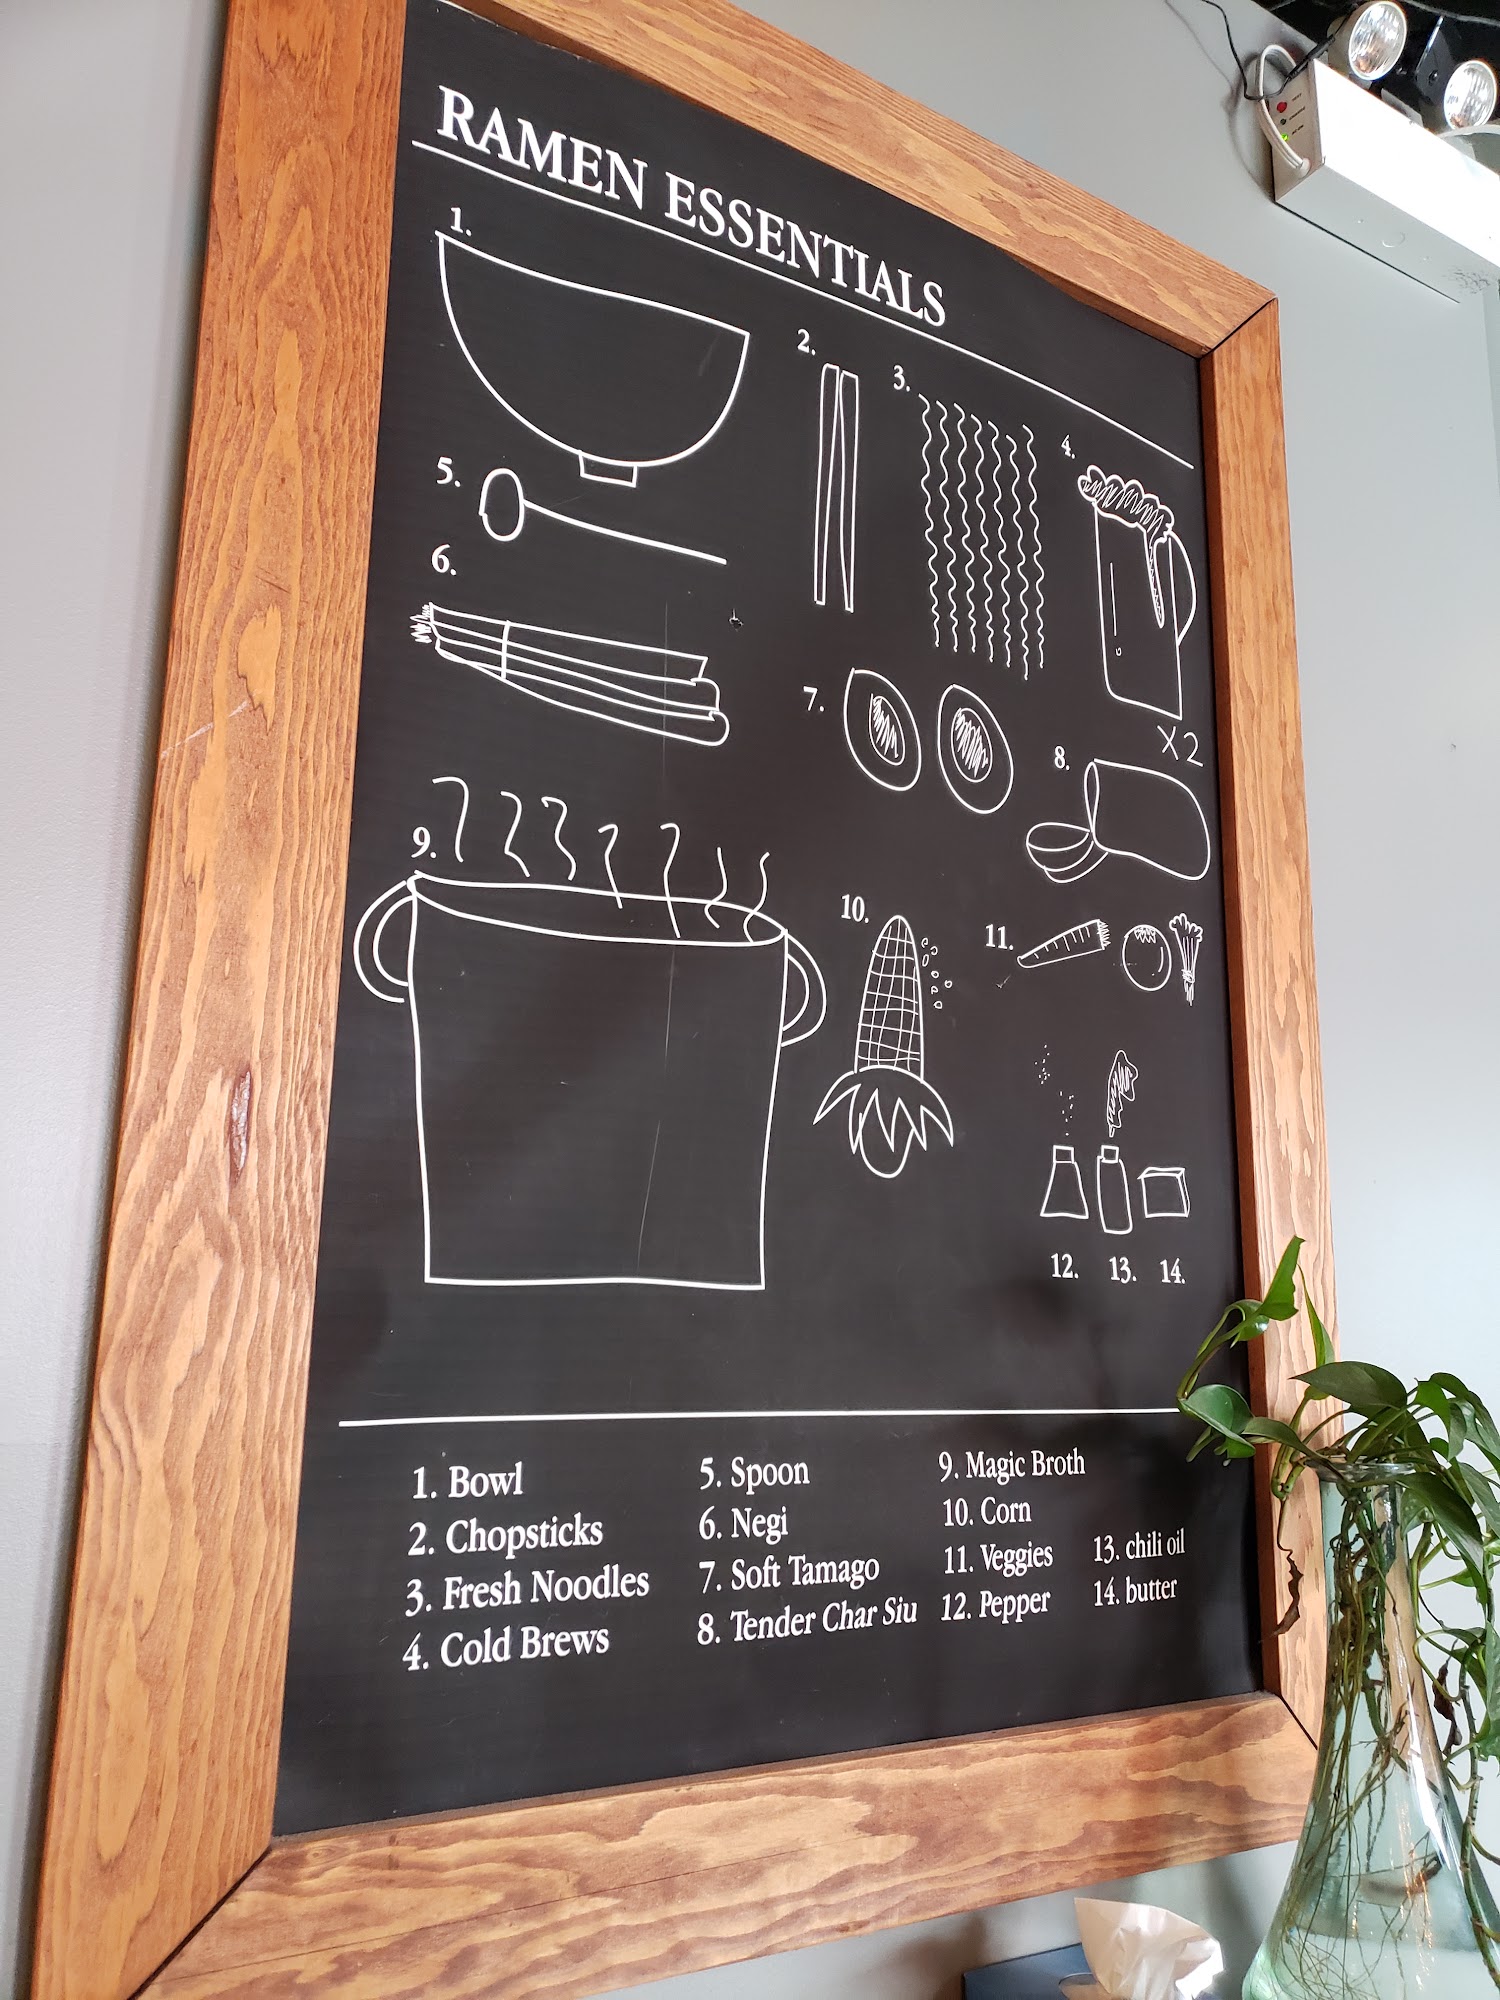 RAMEN ESSENTIALS
1.
2.
3.
4.
5.
6.
7.
X2
8.
9.
10.
11.
12. 13. 14.
1. Bowl
2. Chopsticks
3. Fresh Noodles
4. Cold Brews
5. Spoon
6. Negi
7. Soft Tamago
8. Tender Char Siu
9. Magic Broth
10. Corn
11. Veggies
12. Pepper
13. chili oil
14. butter